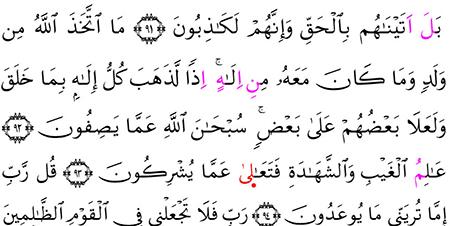 بَلَ اَتَيْنَٰهُم بِالْحَقِّ وَإِنَّهُمْ لَكَٰذِبُونَ ﴿٩١﴾ مَا اَتَّخَذَ اَللَّهُ مِن
وَلَدٍ وَمَا كَانَ مَعَهُۥ مِنِ اِلَٰهٍۖ اِذٗا لَّذَهَبَ كُلُّ إِلَٰهِۭ بِمَا خَلَقَ
وَلَعَلَا بَعْضُهُمْ عَلَىٰ بَعْضٖۖ سُبْحَٰنَ اَللَّهِ عَمَّا يَصِفُونَ ﴿٩٢﴾
عَٰلِمُ الْغَيْبِ وَالشَّهَٰدَةِ فَتَعَٰلىٰ عَمَّا يُشْرِكُونَ ﴿٩٣﴾ قُل رَّبِّ
إِمَّا تُرِيَنِّي مَا يُوعَدُونَ ﴿٩٤﴾ رَبِّ فَلَا تَجْعَلْنِي فِي الْقَوْمِ الظَّٰلِمِينَ